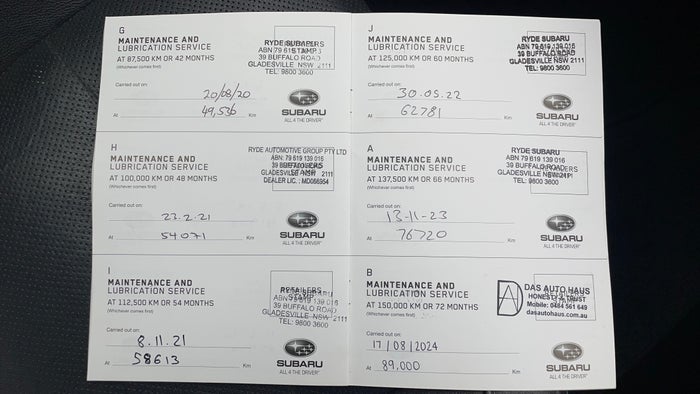 G
MAINTENANCE AND
LUBRICATION SERVICE
AT 87,500 KM OR 42 MONTHS
(Whichever comes first)
RYDE SUBARU
ABN 79 619 139 016
39 BUFFALO ROAD
GLADESVILLE NSW 2111
TEL: 9800 3600
Carried out on:
20/08/20
At 49,536 Km
SUBARU
ALL 4 THE DRIVER
H
MAINTENANCE AND
LUBRICATION SERVICE
AT 100,000 KM OR 48 MONTHS
(Whichever comes first)
RYDE AUTOMOTIVE GROUP PTY LTD
ABN: 79 619 139 016
39 BUFFALO ROAD
GLADESVILLE NSW 2111
DEALER LIC.: MD056954
Carried out on:
23.2.21
At 54071 Km
SUBARU
ALL 4 THE DRIVER
I
MAINTENANCE AND
LUBRICATION SERVICE
AT 112,500 KM OR 54 MONTHS
(Whichever comes first)
RETAILERS
STAMP
RYDE SUBARU
ABN 79 619 139 016
39 BUFFALO ROAD
GLADESVILLE NSW 2111
TEL: 9800 3600
Carried out on:
8.11.21
At 58613 Km
SUBARU
ALL 4 THE DRIVER
J
MAINTENANCE AND
LUBRICATION SERVICE
AT 125,000 KM OR 60 MONTHS
(Whichever comes first)
RYDE SUBARU
ABN 79 619 139 016
39 BUFFALO ROAD
GLADESVILLE NSW 2111
TEL: 9800 3600
Carried out on:
30.05.22
At 62781 Km
SUBARU
ALL 4 THE DRIVER
A
MAINTENANCE AND
LUBRICATION SERVICE
AT 137,500 KM OR 66 MONTHS
(Whichever comes first)
RYDE SUBARU
ABN 79 619 139 016
39 BUFFALO ROAD
GLADESVILLE NSW 2111
TEL: 9800 3600
Carried out on:
13-11-23
At 76720 Km
SUBARU
ALL 4 THE DRIVER
B
MAINTENANCE AND
LUBRICATION SERVICE
AT 150,000 KM OR 72 MONTHS
(Whichever comes first)
DA
DAS AUTO HAUS
HONESTY & TRUST
Mobile: 0484 561 649
dasautohaus.com.au
Carried out on:
17/08/2024
At 89,000 Km
SUBARU
ALL 4 THE DRIVER